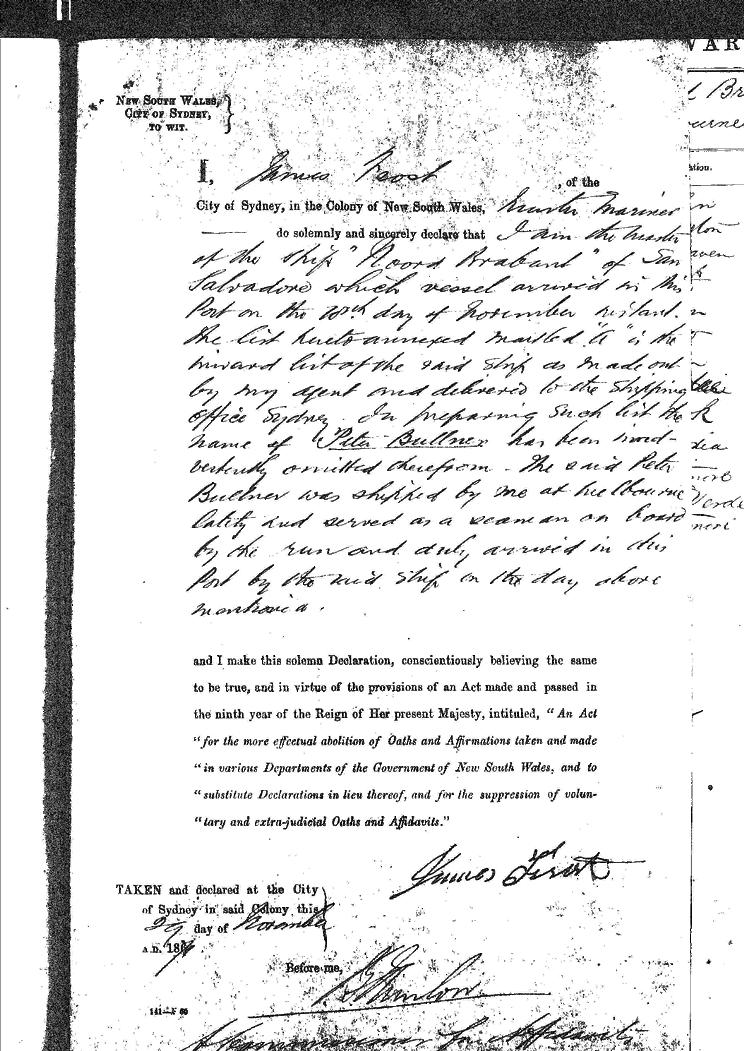 NEW SOUTH WALES,
CITY OF SYDNEY,
TO WIT.
I, James Frost, of the
City of Sydney, in the Colony of New South Wales, Master Mariner
do solemnly and sincerely declare that I am the Master
of the Ship "Noord Brabant" of San
Salvadore which vessel arrived in this
Port on the day of November instant.
The list hereto annexed marked "A" is the
inward list of the said Ship as made out
by my agent and delivered to the Shipping
Office Sydney. In preparing such list the
name of Peter Bullner has been inad-
vertently omitted therefrom. The said Peter
Bullner was shipped by me at Melbourne
lately and served as a seaman on board
by the run and duly arrived in this
Port by the said Ship on the day above
mentioned.
and I make this solemn Declaration, conscientiously believing the same
to be true, and in virtue of the provisions of an Act made and passed in
the ninth year of the Reign of Her present Majesty, intituled, "An Act
"for the more effectual abolition of Oaths and Affirmations taken and made
"in various Departments of the Government of New South Wales, and to
"substitute Declarations in lieu thereof, and for the suppression of volun-
"tary and extra-judicial Oaths and Affidavits."
James Frost
TAKEN and declared at the City
of Sydney in said Colony this
29 day of November
A.D. 18
Before me,
A Commissioner for Affidavits